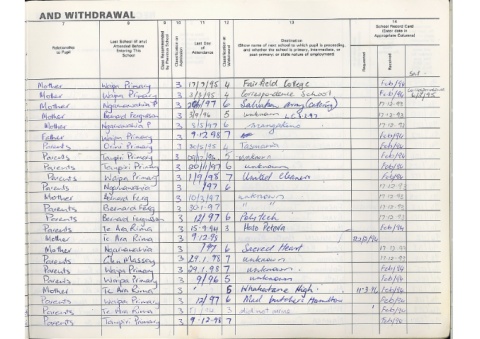 AND WITHDRAWAL
7 8 9 10 11 12 13 14
Relationship to Pupil
Last School (if any) Attended Before Entering This School
Class Recommended by Previous School
Classification on Admission
Last Day of Attendance
Classification at Withdrawal
Destination
(Show name of next school to which pupil is proceeding, and whether the school is primary, intermediate, or post-primary, or state nature of employment)
School Record Card (Enter date in Appropriate Column)
Requested
Received
Mother Waipa Primary 3 17/7/95 4 Fairfield College Feb/94
Mother Waipa Primary 3 3/5/95 4 Correspondence School Feb/94
Mother Ngaruawahia P 3 /97 6 Salvation Army (catering) 17.12.93
Mother Bernard Ferguson 3 5/9/96 5 unknown 17.12.93
Mother Ngaruawahia P 3 /5/97 6 17.12.93
Father Waipa Primary 3 9.12.98 7 Feb/94
Parents Orini Primary 3 30/5/95 4 Tasmania Feb/94
Parents Taupiri Primary 3 /96 5 unknown Feb/94
Parents Taupiri Primary 3 20/11/97 6 unknown Feb/94
Parents Waipa Primary 3 1/9/98 7 United Cleaners Feb/94
Parents Ngaruawahia 3 /97 6 17.12.93
Mother Bernard Ferg 3 10/3/97 unknown 17.12.93
Parents Bernard Ferg 3 30.1.97 " " 17.12.93
Parents Bernard Ferguson 3 12/97 6 Polytech 17.12.93
Parents Te Ara Rima 3 15.9.94 3 Feb/94
Mother Te Ara Rima 3 9.12.98
Mother Ngaruawahia 3 /97 6 Sacred Heart 17.12.93
Parents Clen Massey 3 29.1.98 7 unknown Feb/94
Parents Waipa Primary 3 29.1.98 7 unknown Feb/94
Parents Waipa Primary 3 9/96 5 unknown Feb/94
Mother Te Ara Rima 3 5 Whakatane High 11.3.96 Feb/94
Parents Waipa Primary 3 12/97 6 Mad butchers Hamilton Feb/94
Parents Te Ara Rima 3 3 did not arrive Feb/94
Parents Taupiri Primary 3 9.12.98 7 Feb/94